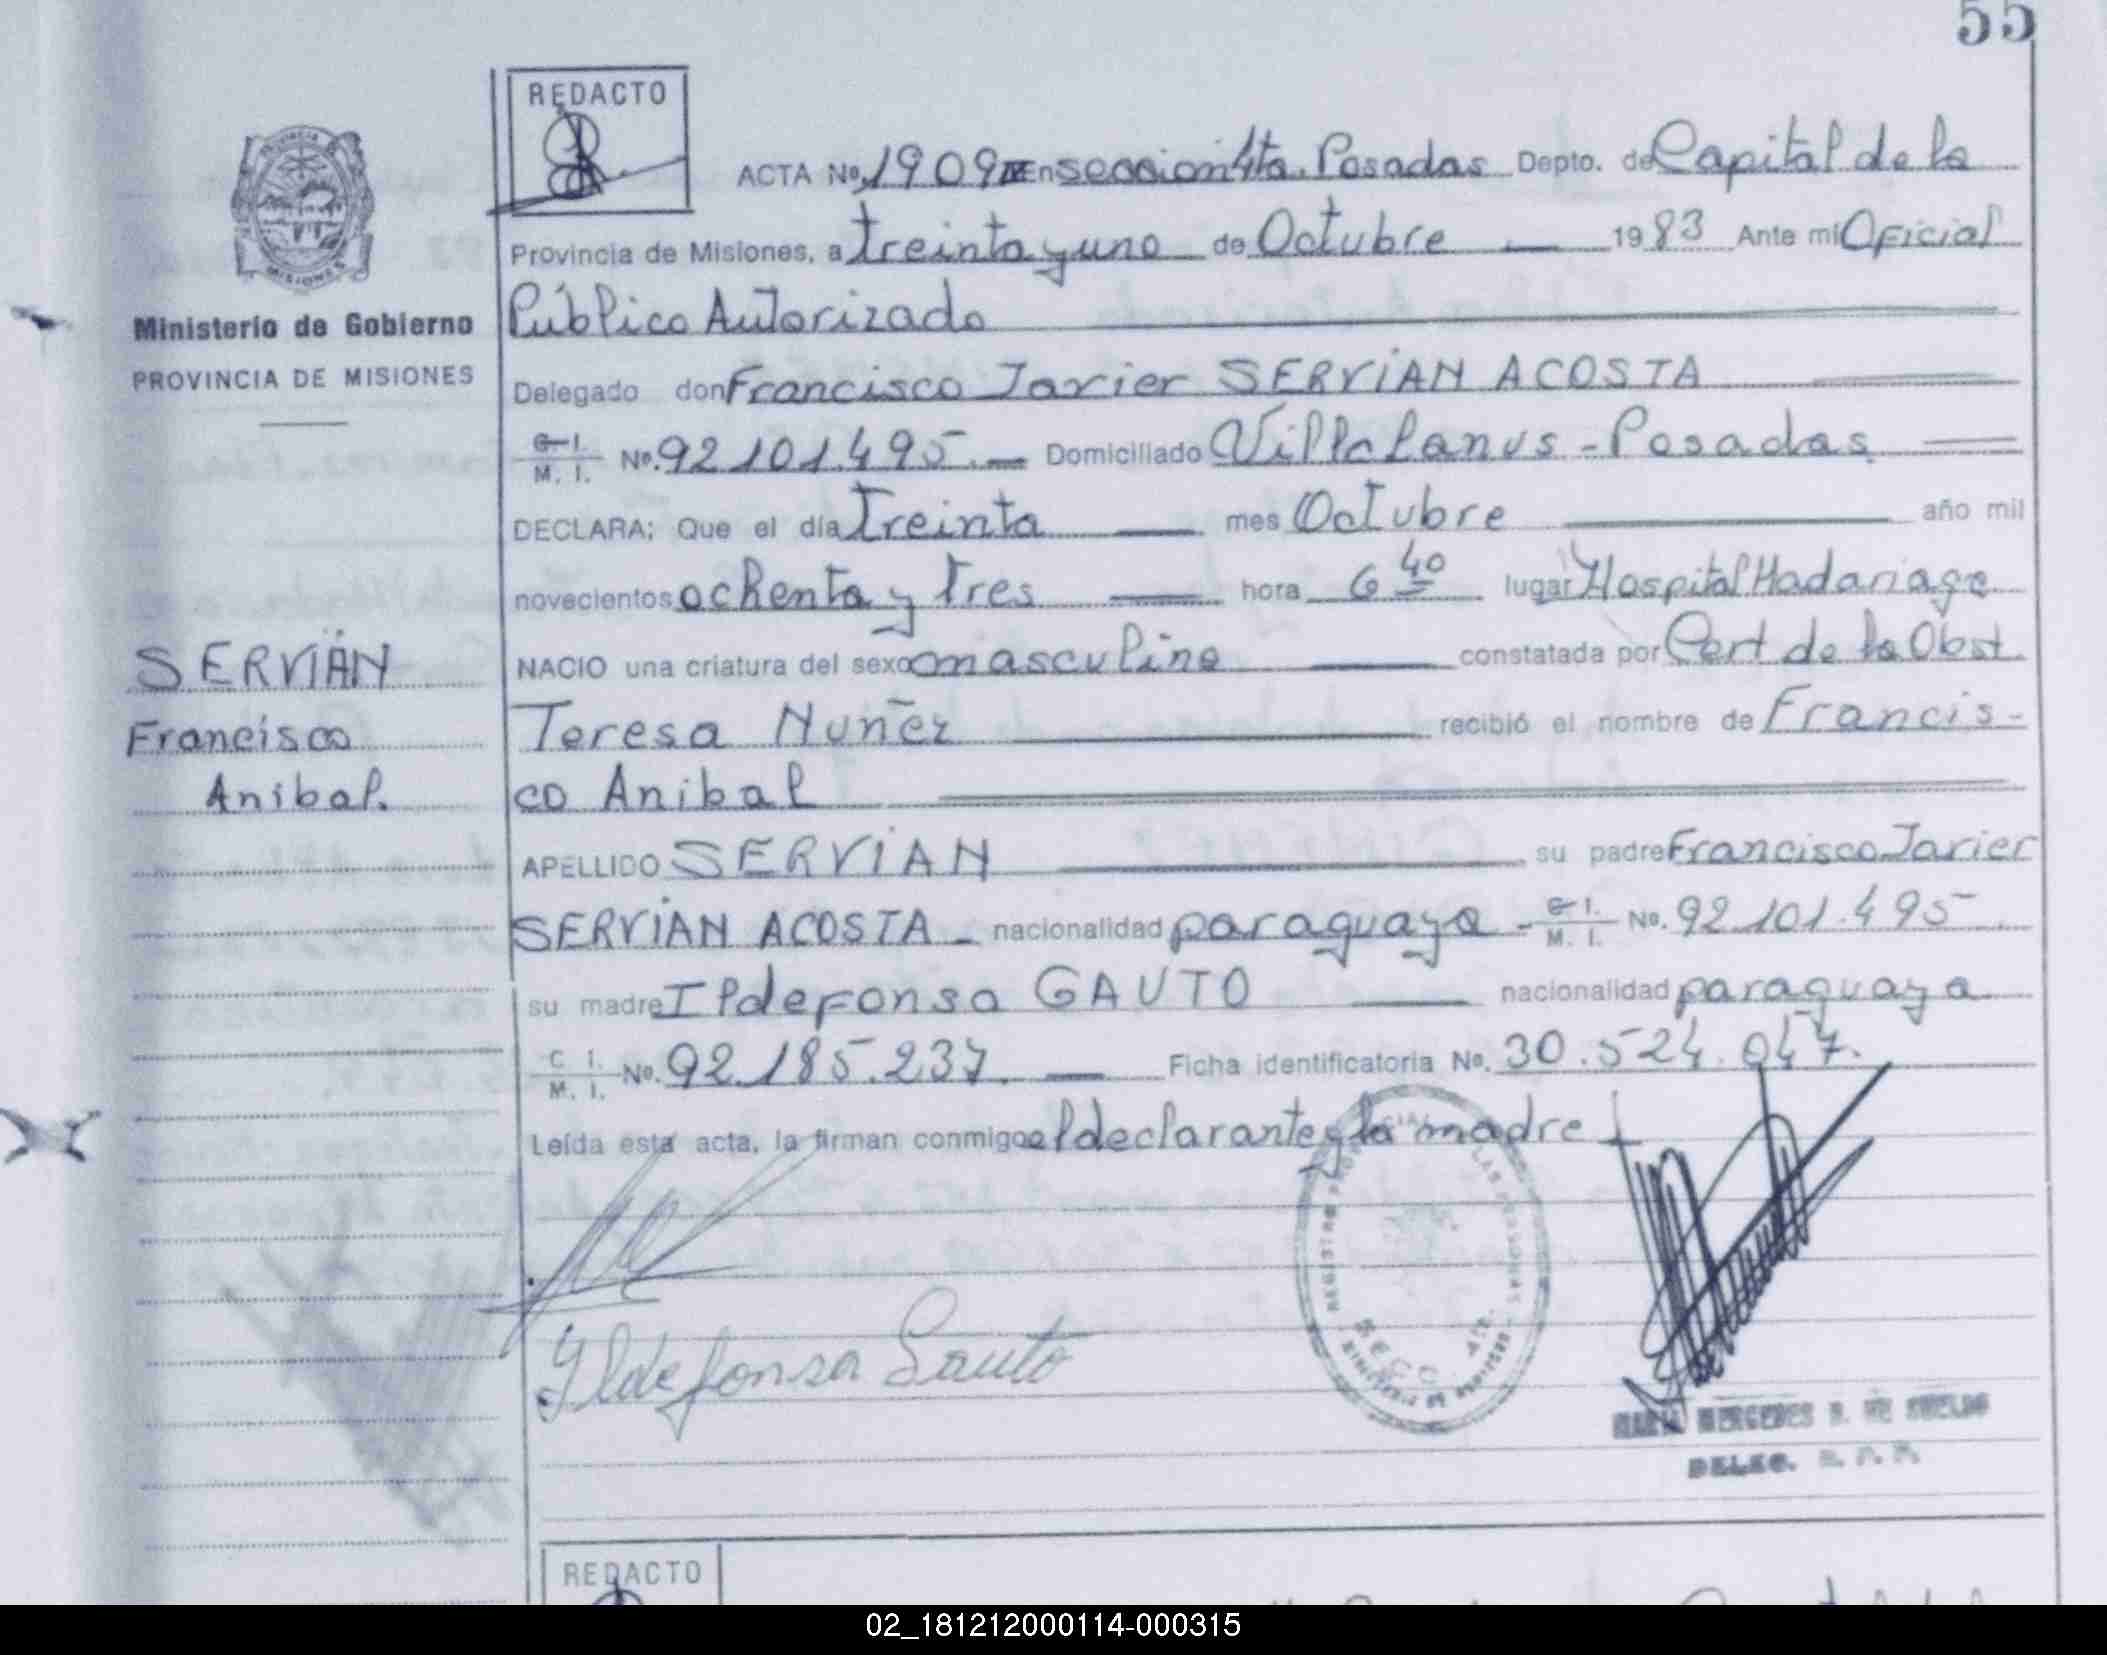 55
REDACTO
ACTA Nº 1909 En seccion 4ta. Posadas Depto. de Capital de la
Provincia de Misiones, a treinta y uno de Octubre 1983 Ante mi Oficial
Ministerio de Gobierno
PROVINCIA DE MISIONES
Público Autorizado
Delegado don Francisco Javier SERVIAN ACOSTA
C. I. M. I. Nº. 92.101.495.- Domiciliado Villa Lanus - Posadas
DECLARA: Que el día Treinta mes Octubre año mil
novecientos ochenta y tres hora 6 40 lugar Hospital Madariaga
NACIO una criatura del sexo masculino constatada por Cert de la Obst
SERVIÁN
Francisco
Anibal.
Teresa Nuñez recibió el nombre de Francis-
co Anibal
APELLIDO SERVIAN su padre Francisco Javier
SERVIAN ACOSTA - nacionalidad paraguaya - C. I. M. I. Nº. 92.101.495
su madre Ildefonsa GAUTO nacionalidad paraguaya
C. I. M. I. Nº. 92.185.237. Ficha identificatoria Nº. 30.524.047.
Leída esta acta, la firman conmigo el declarante y la madre
Ildefonsa Gauto
MISIONES
REGISTRO PROVINCIAL LAS PERSONAS
SECC. 4TA.
MARIA MERCEDES
DELEG. R. P. P.
REDACTO
02_181212000114-000315